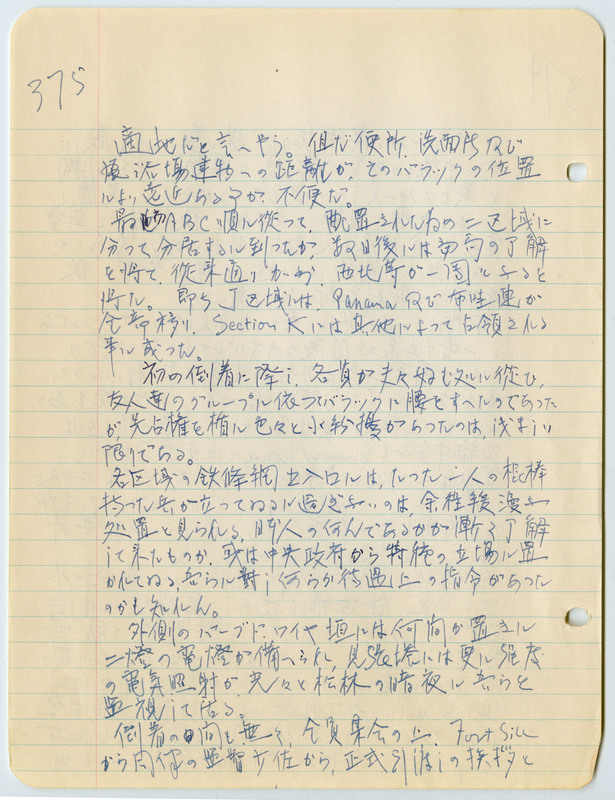 375
適地だと言へやう。但だ便所、洗面所及び
洗場建物への距離が、そのバラックの位置
により遠近ある事が不便だ。
最初ABC順に従って、配置された為め二区域に
分って分居するに到ったが、数日後には当局の了解
を得て、従来通りがお、西比等が一団となると
得た。即ち J区域には、Panama 及び布哇連が
全部移り、Section Kには其他によって占領される
事に成った。
初の到着に際し、各員が夫々好む処に従ひ、
友人達のグループに依ってバラックに腰をすへたのであった
が、先占権を楯に色々と小紛擾があったのは、浅ましい
限りである。
各区域の鉄條網出入口には、たった一人の棍棒
持った兵が立ってゐるに過ぎないのは、余程緩漫な
処置と見られる、日本人の何んであるかが漸く了解
して来たものか、或は中央政府から特種の立場に置
かれてゐる、吾らに対し何らか待遇上の指令があった
のかも知れん。
外側のバーブド、ワイヤ垣には何間か置きに
二燈の電燈が備へられ、見張塔には更に強度
の電気照射が、夫々と松林の暗夜に吾らを
監視して居る。
到着の日間も無く、全員集会の上、Fort Sill
から同伴の監督少佐から、正式引渡しの挨拶と